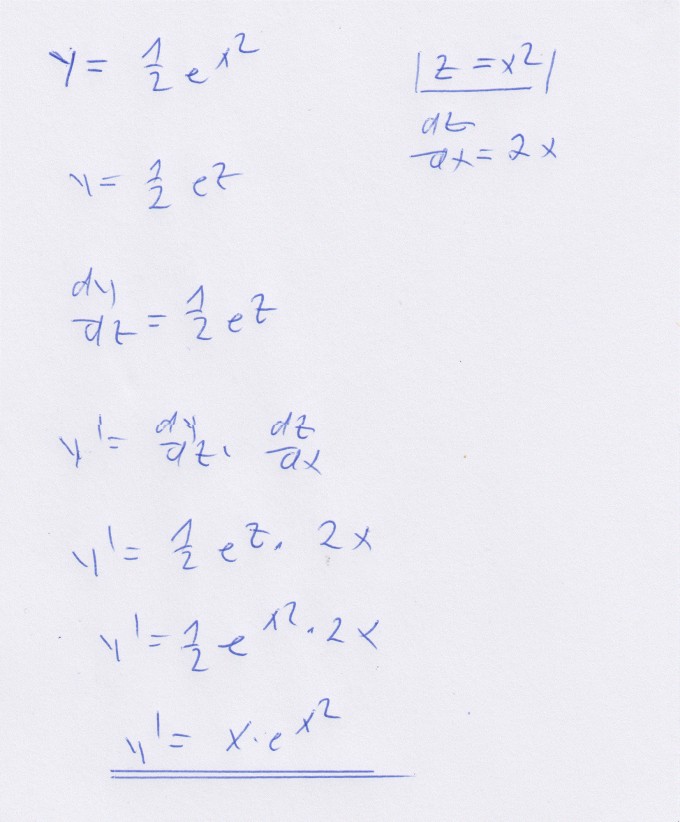 y = 1/2 e^x^2 | z = x^2 |
dz/dx = 2x
y = 1/2 e^z
dy/dz = 1/2 e^z
y' = dy/dz · dz/dx
y' = 1/2 e^z · 2x
y' = 1/2 e^x^2 · 2x
y' = x · e^x^2